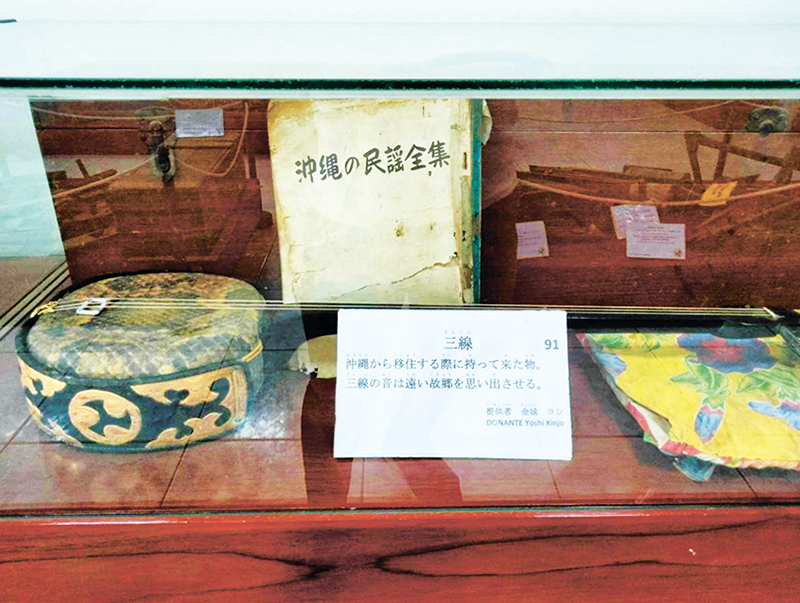 沖縄の民謡全集
三線 91
沖縄から移住する際に持って来た物。
三線の音は遠い故郷を思い出させる。
提供者 金城 ヨシ
DONANTE Yoshi Kinjo